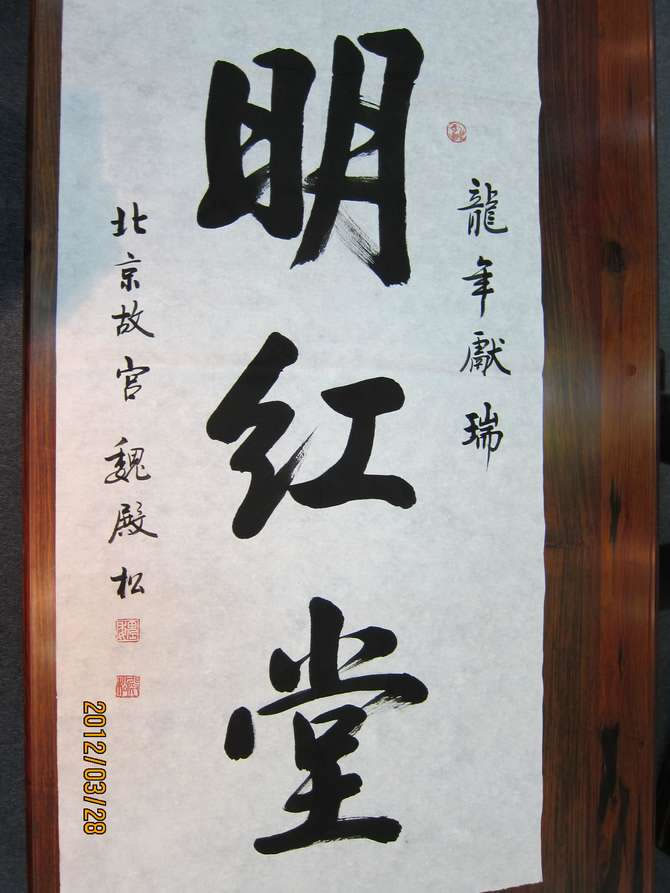 龍年獻瑞
明红堂
北京故宫魏殿松
2012/03/28